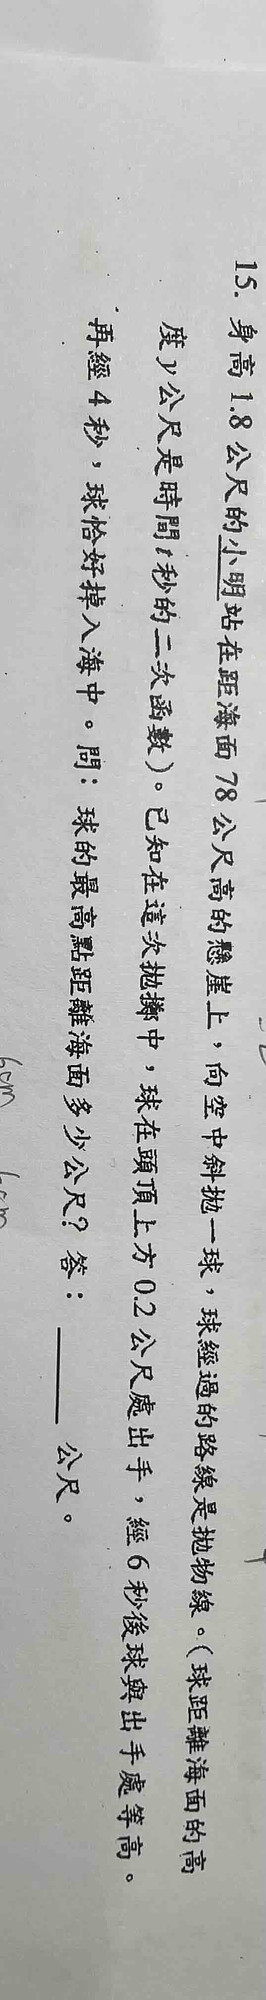 15. 身高 1.8 公尺的小明站在距海面 78 公尺高的懸崖上，向空中斜拋一球，球經過的路線是拋物線。(球距離海面的高
度 y 公尺是時間 t 秒的二次函數)。已知在這次拋擲中，球在頭頂上方 0.2 公尺處出手，經 6 秒後球與出手處等高。
再經 4 秒，球恰好掉入海中。問：球的最高點距離海面多少公尺？答：______公尺。
6cm 6cm